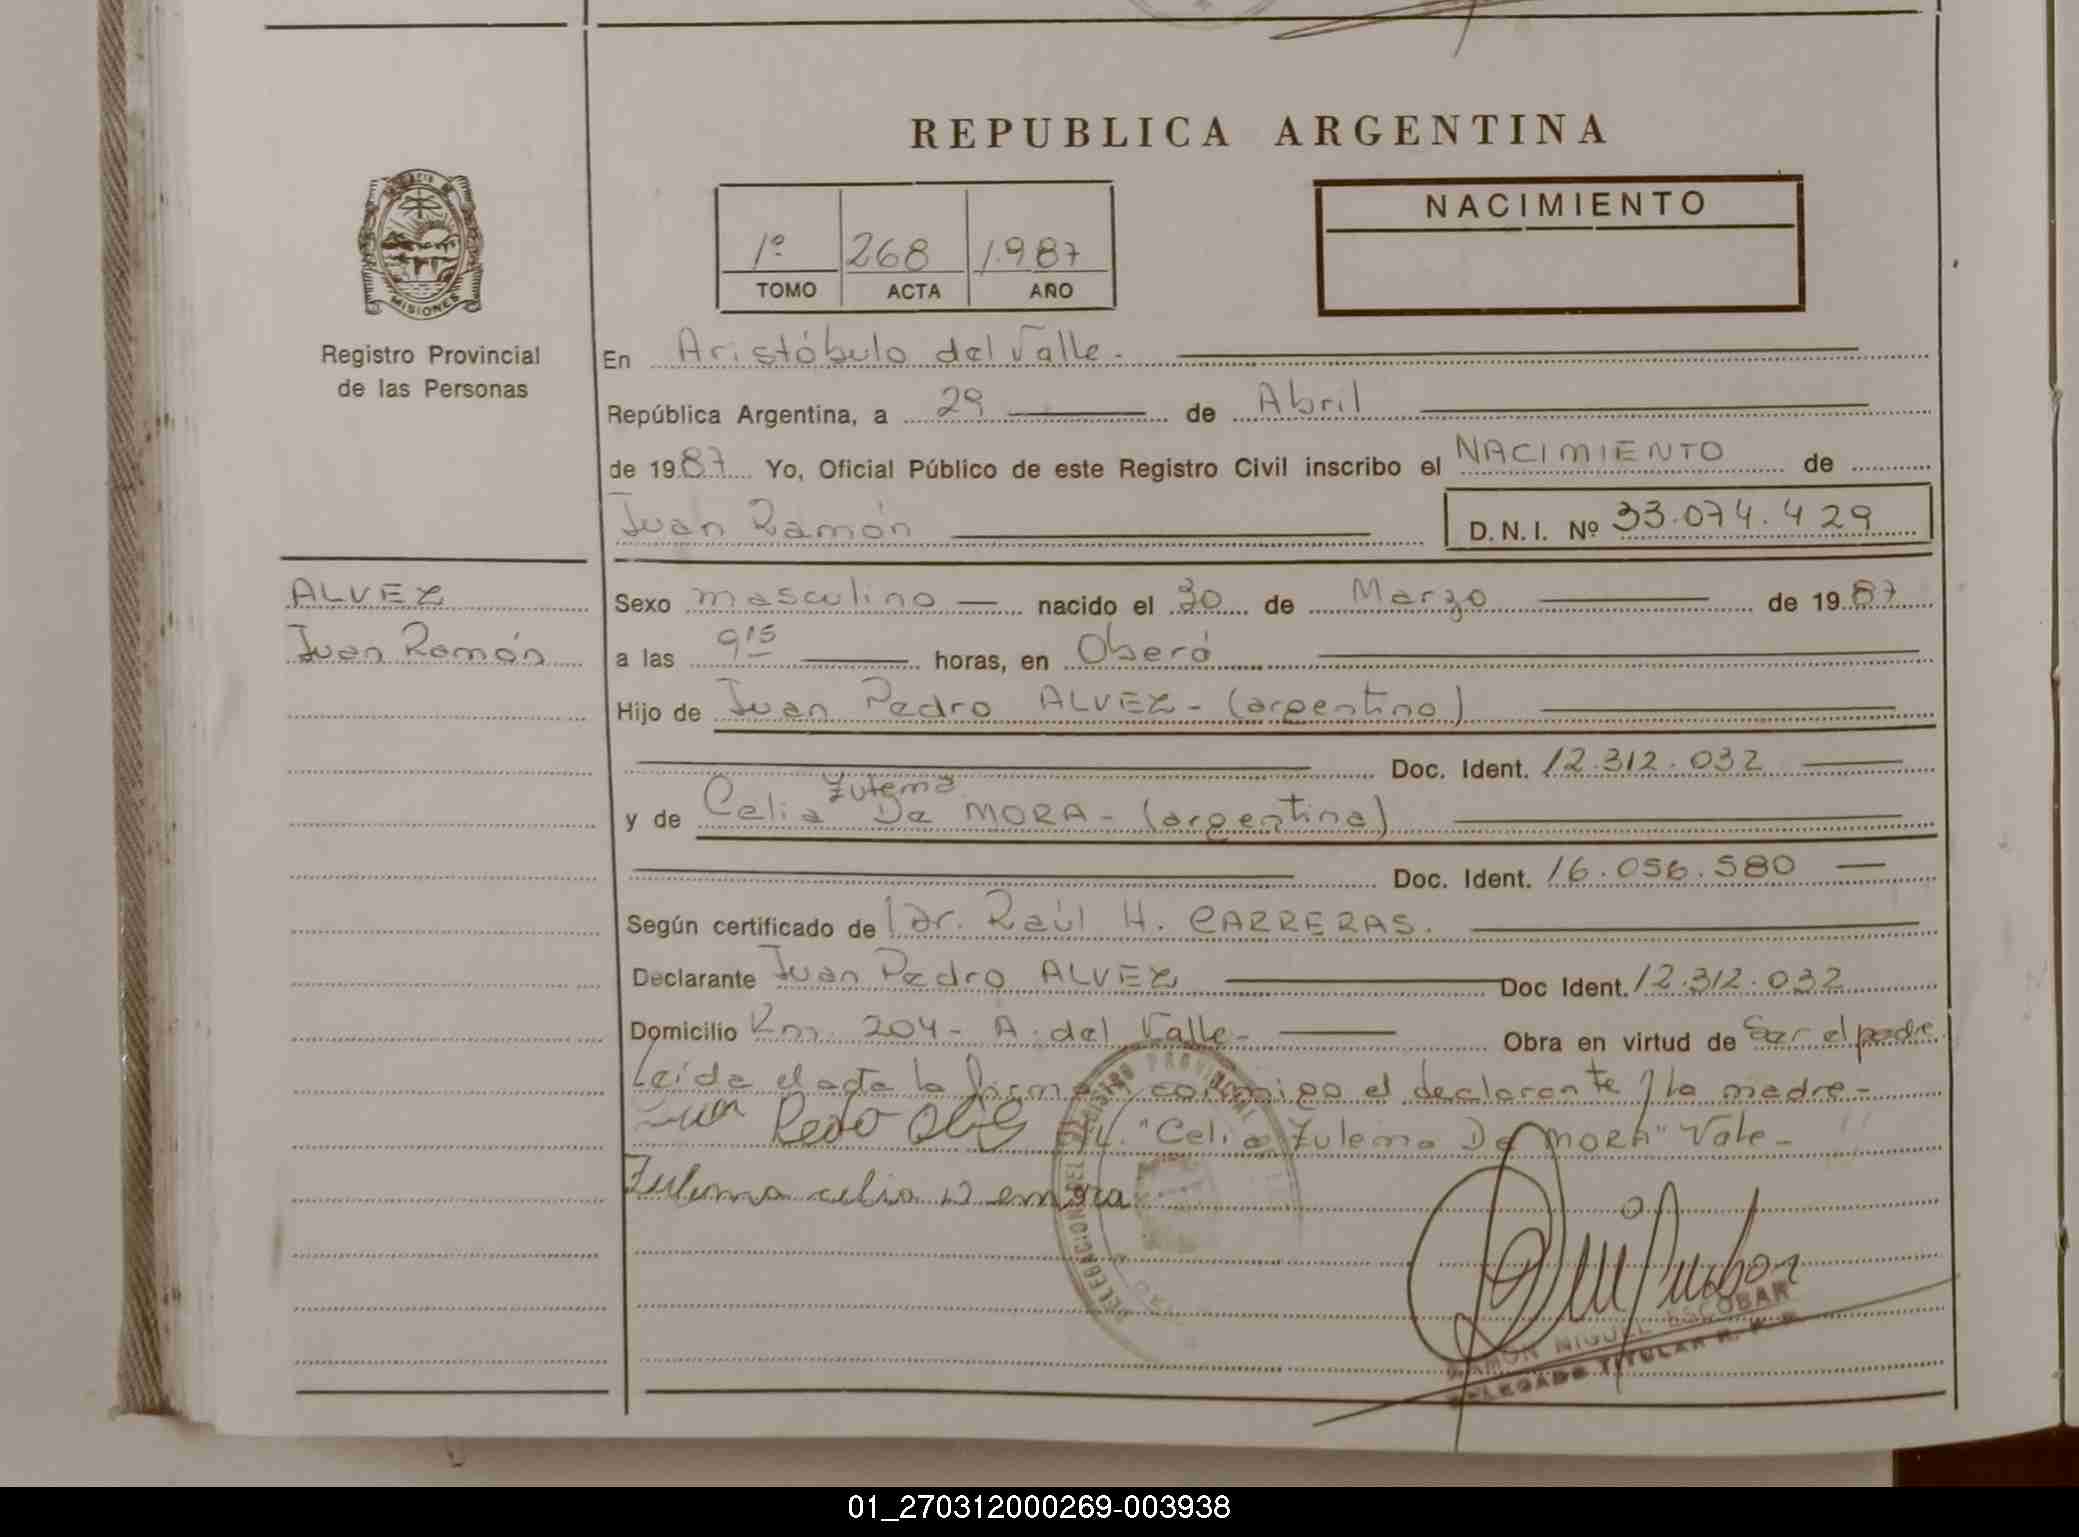 REPUBLICA ARGENTINA
NACIMIENTO
1º 268 1.987
TOMO ACTA AÑO
MISIONES
Registro Provincial
de las Personas
En Aristóbulo del Valle.-
República Argentina, a 29 de Abril
de 1987 Yo, Oficial Público de este Registro Civil inscribo el NACIMIENTO de
Juan Ramón D.N.I. Nº 33.074.429
ALVEZ
Juan Ramón
Sexo masculino — nacido el 30 de Marzo de 1987
a las 9 15 horas, en Oberá
Hijo de Juan Pedro ALVEZ - (argentino)
Doc. Ident. 12.312.032
Zulema
y de Celia De MORA - (argentina)
Doc. Ident. 16.056.580 —
Según certificado de Dr. Raúl H. CARRERAS.
Declarante Juan Pedro ALVEZ Doc Ident. 12.312.032
Domicilio Km. 204 - A. del Valle - Obra en virtud de Ser el padre
Leída el acta la firman conmigo el declarante y la madre -
"Celia Zulema De MORA" Vale -
Zulema celia D emora
REGISTRO PROVINCIAL
DELEGACION
RAMON MIGUEL ESCOBAR
DELEGADO TITULAR R. P. P.
01_270312000269-003938